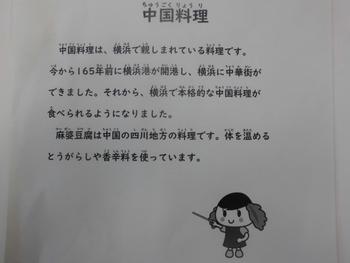 中国料理
中国料理は、横浜で親しまれている料理です。
今から165年前に横浜港が開港し、横浜に中華街が
できました。それから、横浜で本格的な中国料理が
食べられるようになりました。
麻婆豆腐は中国の四川地方の料理です。体を温める
とうがらしや香辛料を使っています。